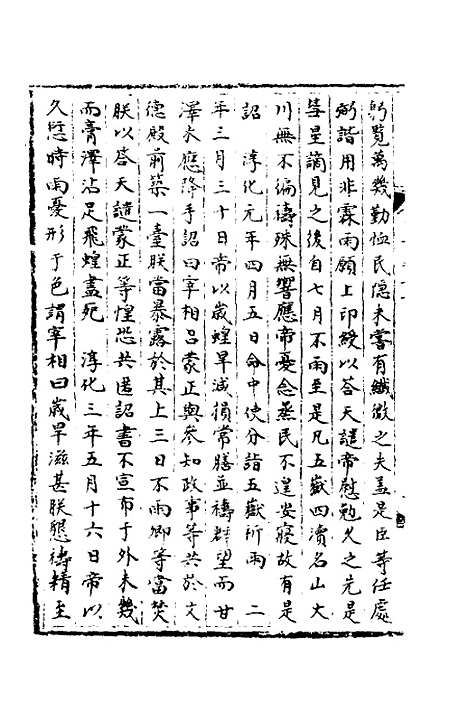 躬覧萬幾勤恤民隱未嘗有纖微之失蓋是臣等任處
弼諧用非霖雨願上印綬以荅天譴帝慰勉久之先是
彗星謫見之後自七月不雨至是凡五嶽四瀆名山大
川無不徧禱殊無響應帝憂念蒸民不遑安寝故有是
詔　淳化元年四月五日命中使分詣五嶽祈雨　二
年三月三十日帝以歲蝗旱減損常膳並禱群望而甘
澤未應降手詔曰宰相吕蒙正與叅知政事等共於文
德殿前築一臺朕當暴露於其上三日不雨卿等當焚
朕以荅天譴蒙正等惶恐共匿詔書不宣布于外未幾
而膏澤沾足飛蝗盡死　淳化三年五月十六日帝以
久愆時雨憂形于色謂宰相曰歲旱滋甚朕懇禱精至